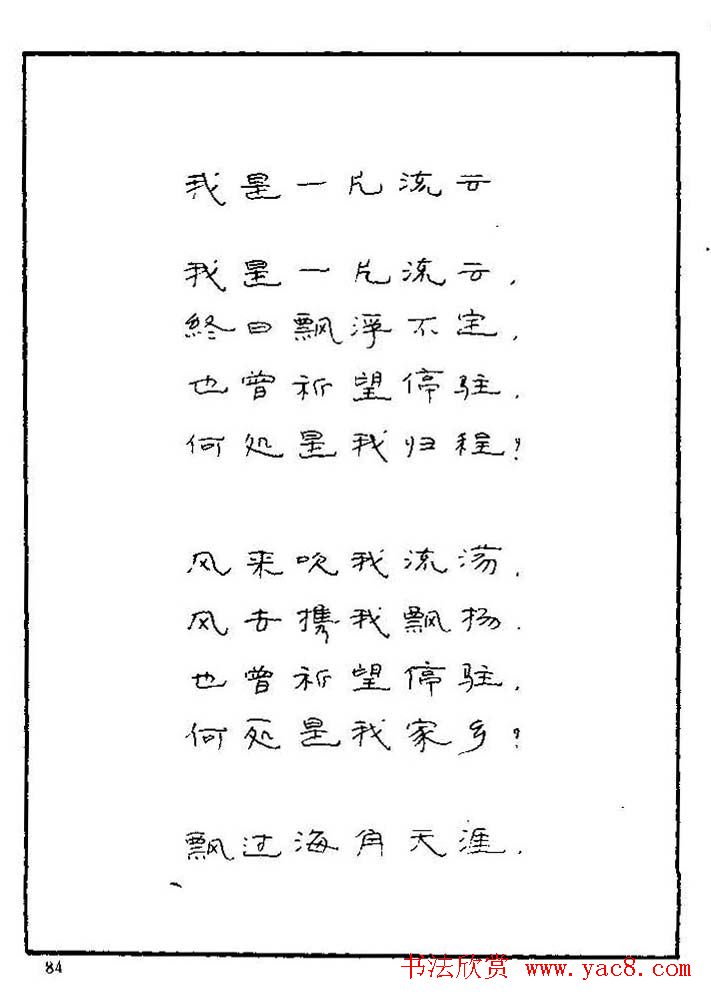 我是一片流云
我是一片流云，
終日飘浮不定，
也曾祈望停驻，
何处是我归程？
风来吹我流荡，
风去携我飘扬．
也曾祈望停驻，
何处是我家乡？
飘过海角天涯，
84
书法欣赏 www.yac8.com